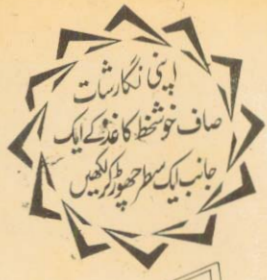 اپنی نگارشات
صاف خوشخط کاغذ کے ایک
جانب ایک سطر چھوڑ کر لکھیں